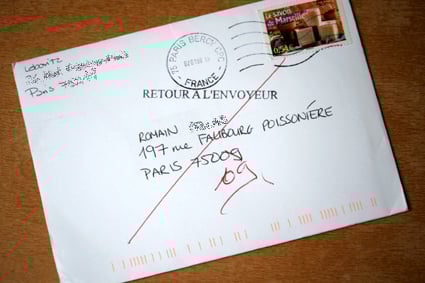 Lebovitz
Paris
75 PARIS BERCY CTC
FRANCE
Le savon
de Marseille
0,54€
RETOUR A L'ENVOYEUR
ROMAIN
197 rue FAUBOURG POISSONIÈRE
PARIS 75009
09